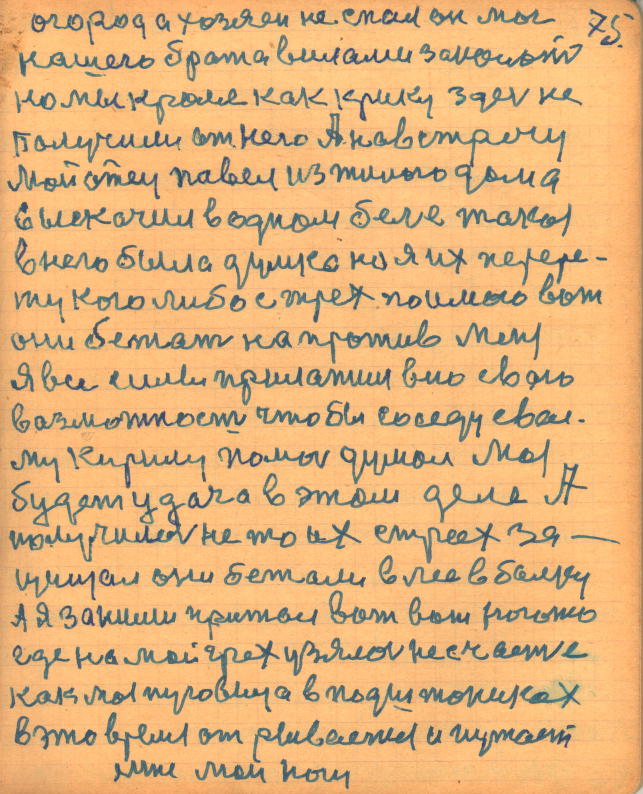 огорода хозяен не спал он мог 75.
нашего брата вилами заколоть
но мы кроме как крику здесь не
получили от него А навстречу
мой отец павел из жилого дома
выскачил в одном беле такая
в него была думка но я их пере-
му кого либо с трех поимаю вот
они бежат напротив меня
Я все силы прилажил в ию свою
возможность чтобы соседу свое-
му Кирилу помоч думал моя
будет удача в этом деле А
получилось не то их страх за—
щищал они бежали в лес в балку
А я за ними притом вот вот
где на мой грех узялось несчастье
как моя пуговица в подштониках
в это время отрывается и путает
мне мои ноги